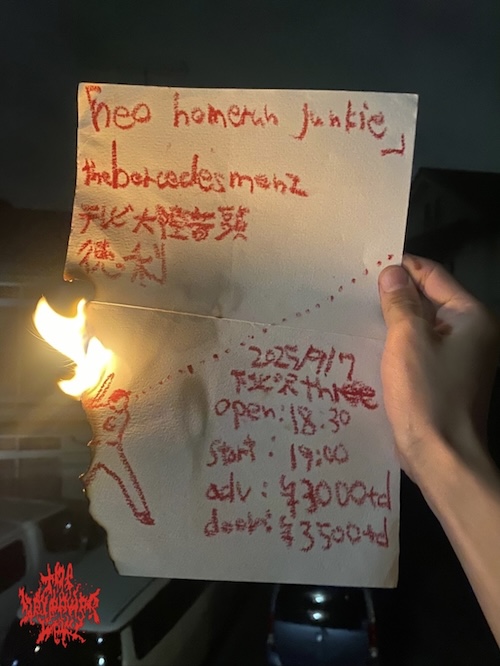 「neo homerun junkie」
thebercedesmenz
テレビ大陸音頭
徳利
2025/9/17
下北沢three
open:18:30
start:19:00
adv:¥3000+d
door:¥3500+d